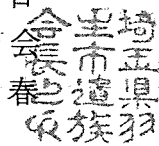 埼玉県羽
生市遺族
会長之印
会春